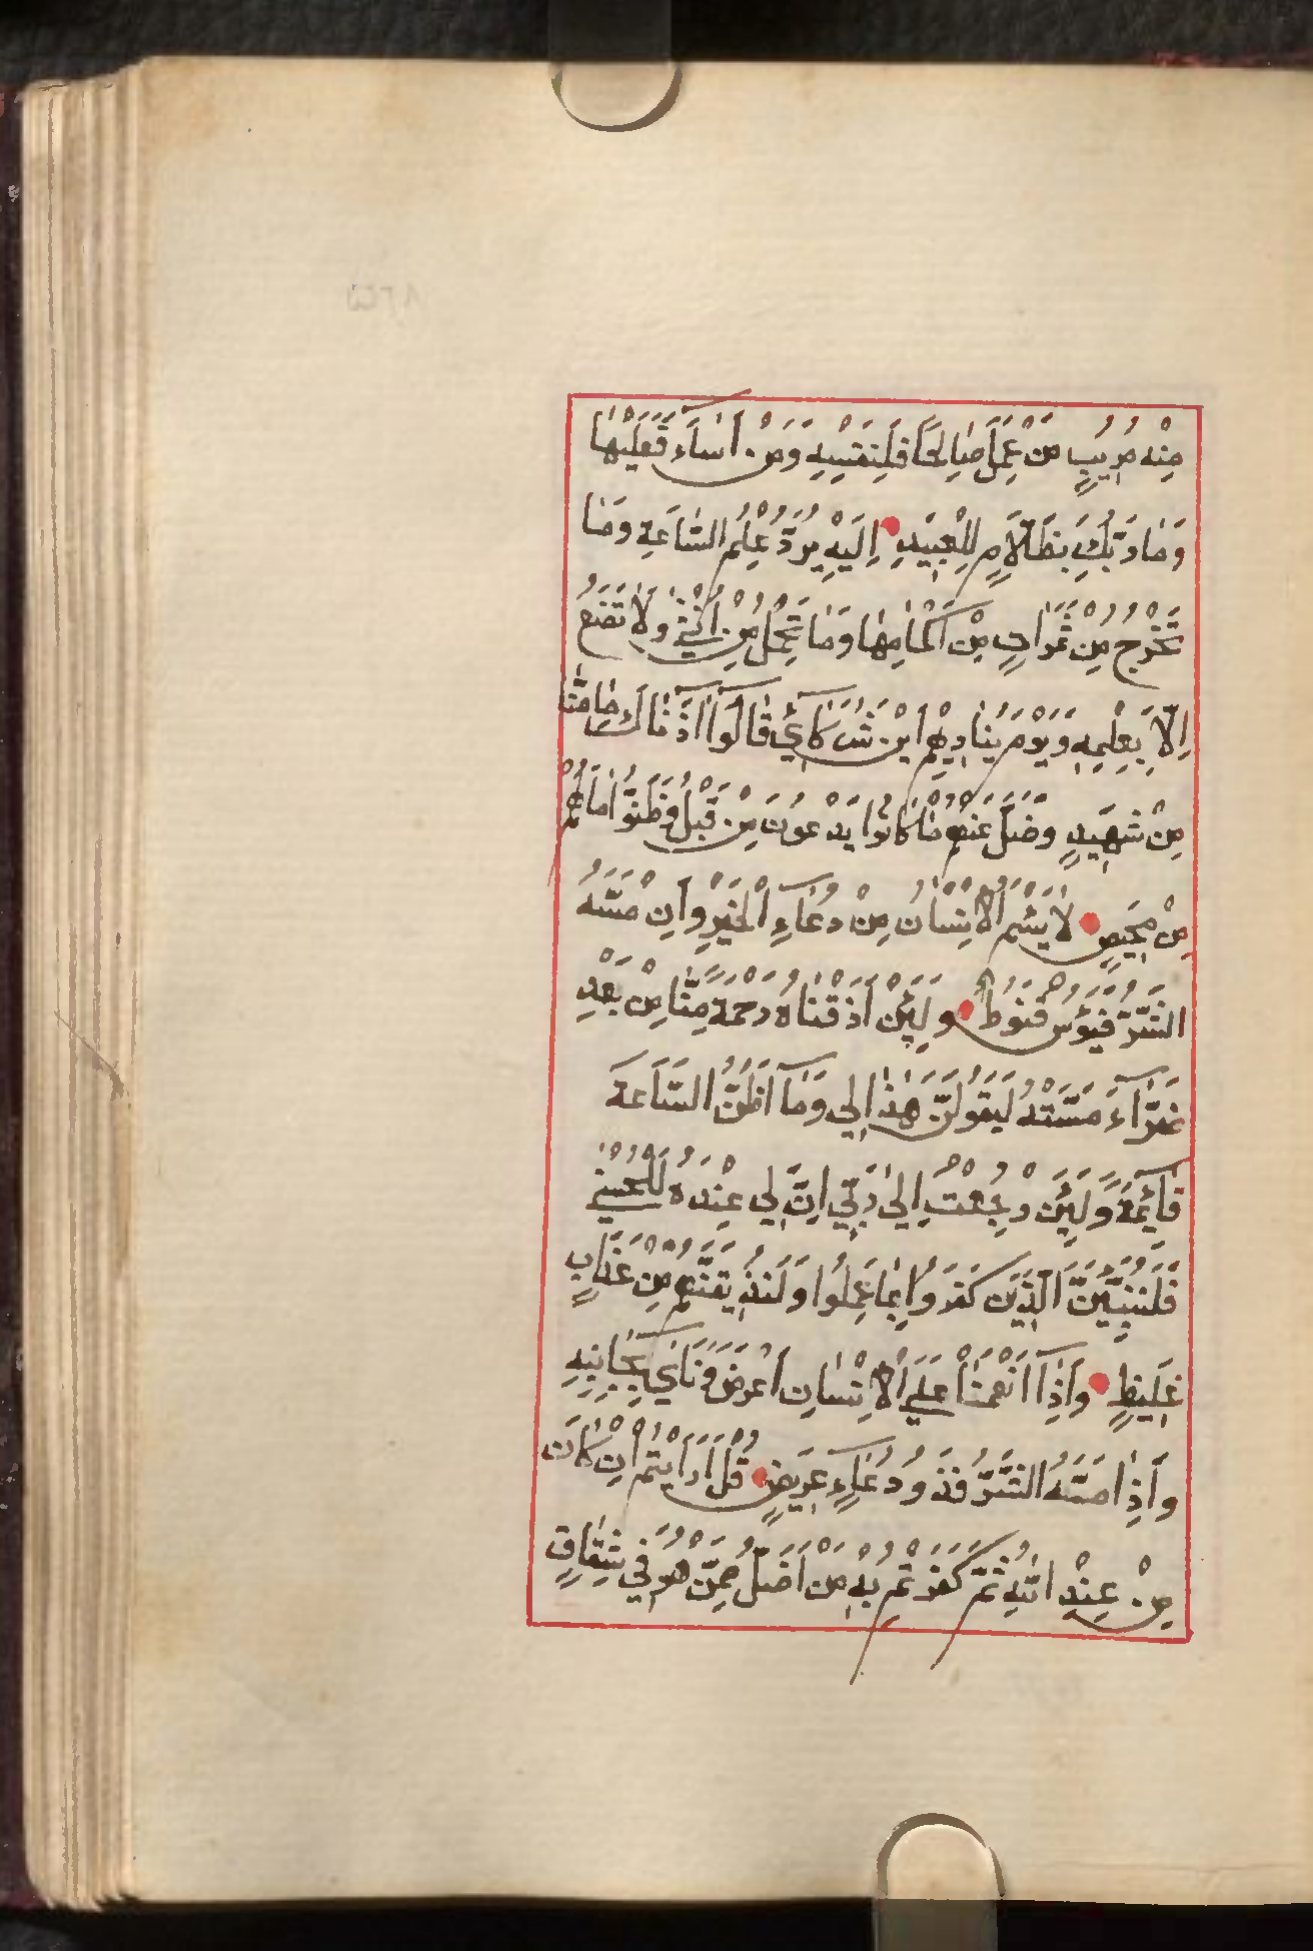 مِنْهُ مُرِيبٍ مَنْ عَمِلَ صَالِحًا فَلِنَفْسِهِ وَمَنْ أَسَآءَ فَعَلَيْهَا
وَمَا رَبُّكَ بِظَلَّامٍ لِلْعَبِيدِ اِلَيْهِ يُرَدُّ عِلْمُ السَّاعَةِ وَمَا
تَخْرُجُ مِنْ ثَمَرَاتٍ مِنْ اَكْمَامِهَا وَمَا تَحْمِلُ مِنْ اُنْثَى وَلَا تَضَعُ
اِلَّا بِعِلْمِهِ وَيَوْمَ يُنَادِيهِمْ اَيْنَ شُرَكَائِي قَالُوا اٰذَنَّاكَ مَا مِنَّا
مِنْ شَهِيدٍ وَضَلَّ عَنْهُمْ مَا كَانُوا يَدْعُونَ مِنْ قَبْلُ وَظَنُّوا مَا لَهُمْ
مِنْ مَحِيصٍ لَا يَسْـَٔمُ الْاِنْسَانُ مِنْ دُعَاءِ الْخَيْرِ وَاِنْ مَسَّهُ
الشَّرُّ فَيَؤُسٌ قَنُوطٌ وَلَئِنْ اَذَقْنَاهُ رَحْمَةً مِنَّا مِنْ بَعْدِ
ضَرَّآءَ مَسَّتْهُ لَيَقُولَنَّ هٰذَا لِي وَمَآ اَظُنُّ السَّاعَةَ
قَآئِمَةً وَلَئِنْ رُجِعْتُ اِلٰى رَبِّي اِنَّ لِي عِنْدَهُ لَلْحُسْنٰى
فَلَنُنَبِّئَنَّ الَّذِينَ كَفَرُوا بِمَا عَمِلُوا وَلَنُذِيقَنَّهُمْ مِنْ عَذَابٍ
غَلِيظٍ وَاِذَآ اَنْعَمْنَا عَلَى الْاِنْسَانِ اَعْرَضَ وَنَاٰى بِجَانِبِهِ
وَاِذَا مَسَّهُ الشَّرُّ فَذُو دُعَآءٍ عَرِيضٍ قُلْ اَرَاَيْتُمْ اِنْ كَانَ
مِنْ عِنْدِ اللّٰهِ ثُمَّ كَفَرْتُمْ بِهِ مَنْ اَضَلُّ مِمَّنْ هُوَ فِي شِقَاقٍ